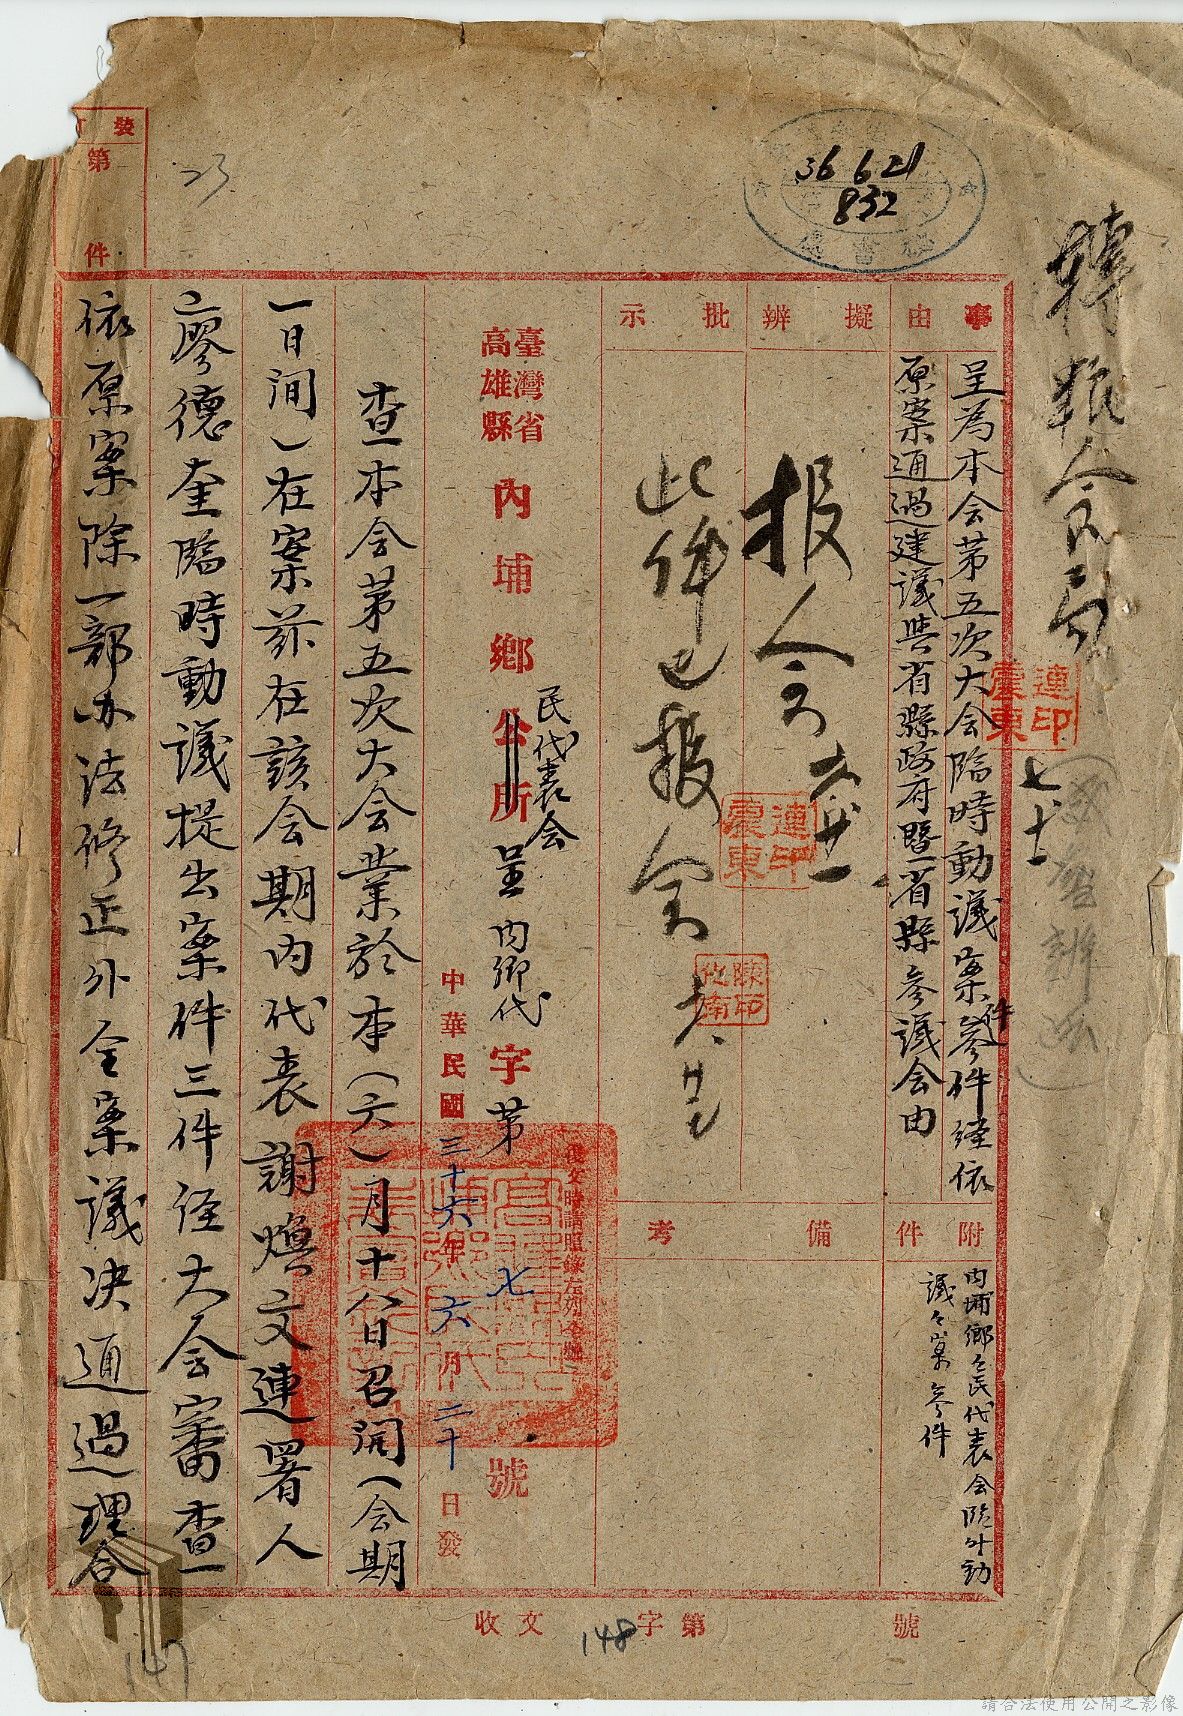 轉報令
連印震東
36 6 21
832
秘書處
事由
呈為本会苐五次大会臨時動議案件參件經依
原案通過建議與省縣政府暨省縣參議会由
擬辨
报令
連印震東
批示
此件已报会
附件
内埔鄉々民代表会臨时動
議々案參件
備考
臺灣省
高雄縣
內埔鄉公所
民代表会
呈
内鄉代
字苐
七
號
復文時請照錄左列
中華民國三十六年六月二十日發
查本会苐五次大会業於本(六)月十八日召開(会期
一日间)在案茲在該会期内代表謝煥文連署人
廖德奎臨時動議提出案件三件经大会審查
依原案除一部办法修正外全案議决通過理合
裝
第
件
23
收文
字第
號
148
147
請合法使用公開之影像